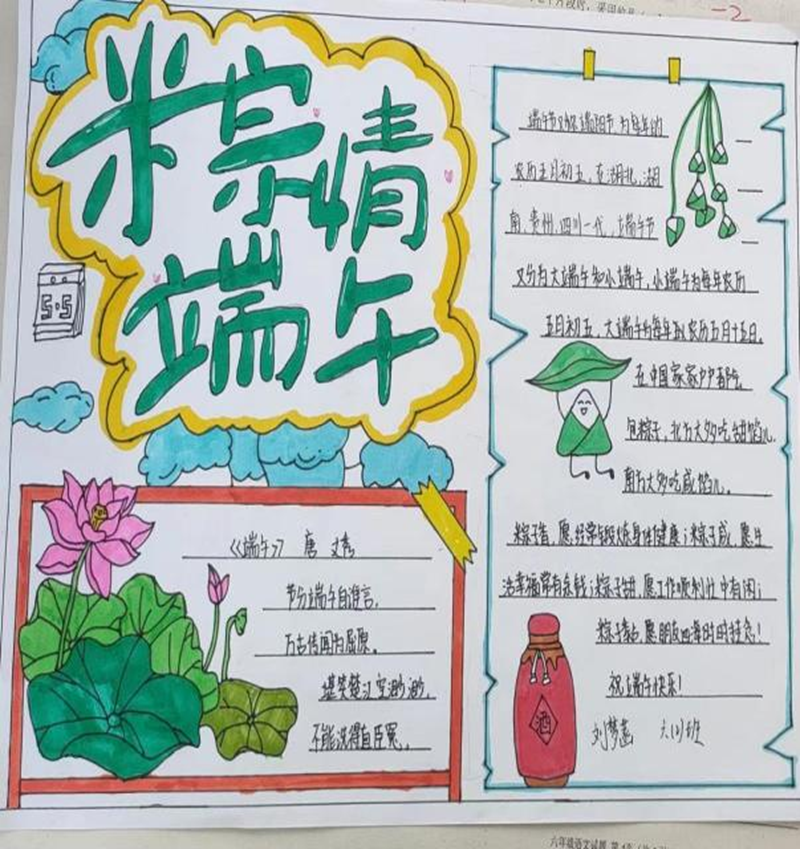 粽情
端午
5·5
《端午》 唐 文秀
节分端午自谁言,
万古传闻为屈原。
堪笑楚江空渺渺,
不能洗得直臣冤。
端午节又称端阳节 为每年的
农历五月初五,在湖北,湖
南,贵州,四川一代,端午节
又分为大端午和小端午,小端午为每年农历
五月初五,大端午为每年农历五月十五日。
在中国家家户户都吃
包粽子,北方大多吃甜馅儿
南方大多吃咸馅儿。
粽子香,愿经常锻炼身体健康;粽子咸,愿生
活幸福常有余钱;粽子甜,愿工作顺利忙中有闲;
粽子黏,愿朋友四海时时挂念!
祝端午快乐!
酒
刘梦菡 六(1)班
六年级语文试题